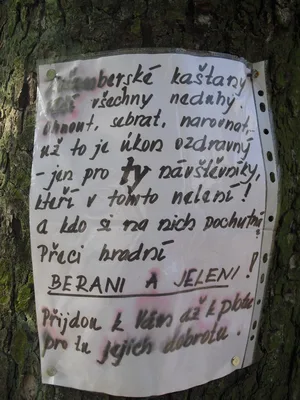 kaštany
všechny neduhy.
ohnout, sebrat, narovnat,
už to je úkon ozdravný
- jen pro ty návštěvníky,
kteří v tomto nelení!
a kdo si na nich pochutná?
Přeci hradní
BERANI A JELENI!
Přijdou k Vám až k plotu
pro tu jejich dobrotu.